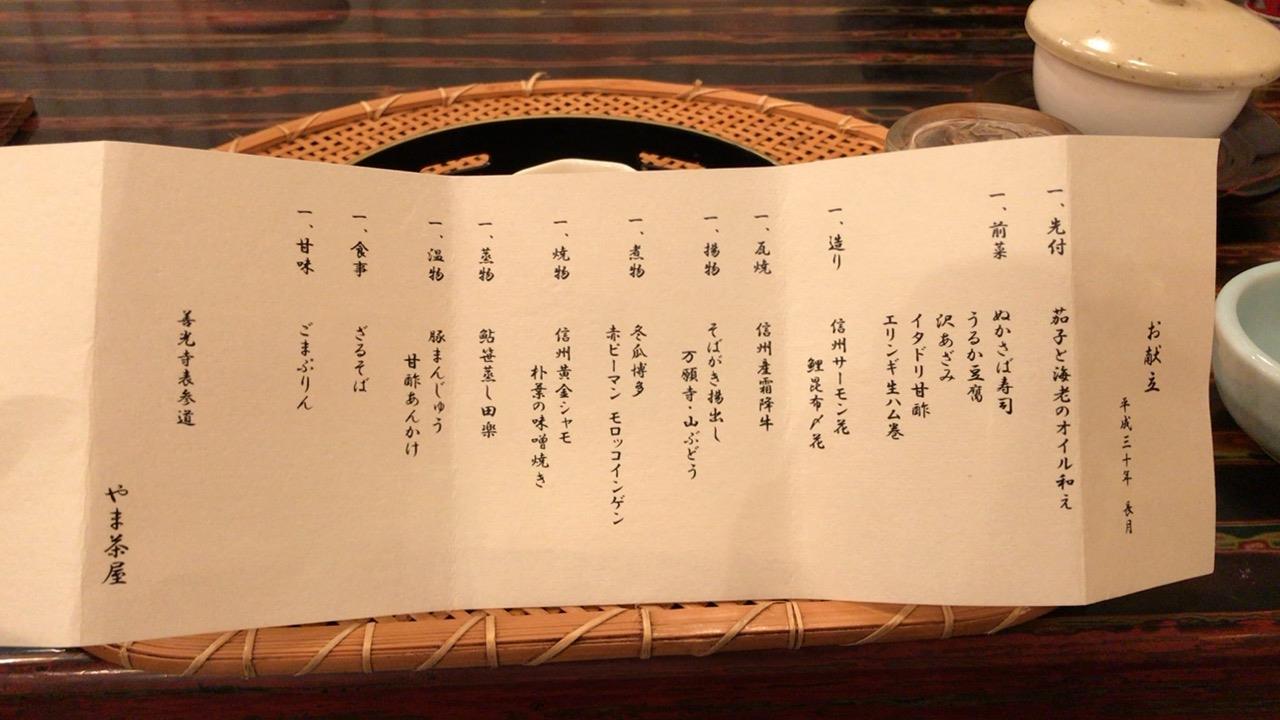 お献立
平成三十年 長月
一、先付 茄子と海老のオイル和え
一、前菜 ぬかさば寿司
うるか豆腐
沢あざみ
イタドリ甘酢
エリンギ生ハム巻
一、造り 信州サーモン花
鯉昆布〆花
一、瓦焼 信州産霜降牛
一、揚物 そばがき揚出し
万願寺・山ぶどう
一、煮物 冬瓜博多
赤ピーマン モロッコインゲン
一、焼物 信州黄金シャモ
朴葉の味噌焼き
一、蒸物 鮎笹蒸し田楽
一、温物 豚まんじゅう
甘酢あんかけ
一、食事 ざるそば
一、甘味 ごまぷりん
善光寺表参道
やま茶屋